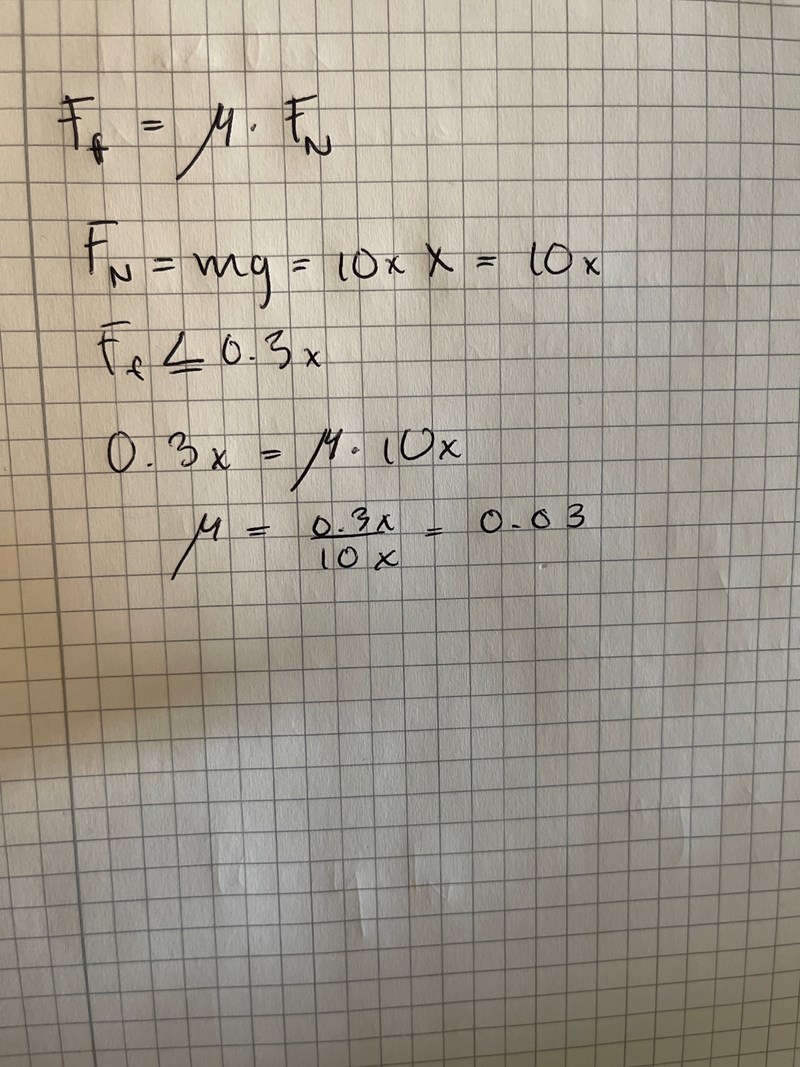 F_f = μ · F_N
F_N = mg = 10 x x = 10x
F_f ≤ 0.3x
0.3x = μ · 10x
μ = 0.3x / 10x = 0.03